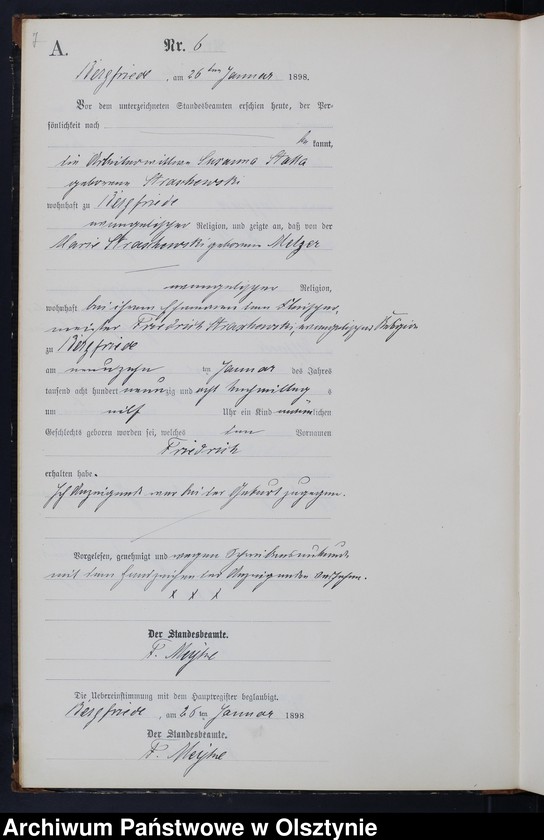 A.
Nr. 6
Bergfriede, am 26ten Januar 1898.
Vor dem unterzeichneten Standesbeamten erschien heute, der Per-
sönlichkeit nach
be kannt,
die Arbeiterwittwe Susanna Stalla
geborene Strachowski
wohnhaft zu Bergfriede
evangelischer Religion, und zeigte an, daß von der
Marie Strachowski geborenen Melzer
evangelischer Religion,
wohnhaft bei ihrem Ehemann dem Fleischer-
meister Friedrich Strachowski, evangelischer Religion
zu Bergfriede
am neunzehn ten Januar des Jahres
tausend acht hundert neunzig und acht Nachmittags
um elf Uhr ein Kind männlichen
Geschlechts geboren worden sei, welches den Vornamen
Friedrich
erhalten habe.
Ich Anzeigende war bei der Geburt zugegen.
Vorgelesen, genehmigt und wegen Schreibensunkunde
mit dem Handzeichen der Anzeigenden versehen.
x x x
Der Standesbeamte.
F.
Die Uebereinstimmung mit dem Hauptregister beglaubigt.
Bergfriede, am 26ten Januar 1898
Der Standesbeamte.
F.
Archiwum Państwowe w Olsztynie